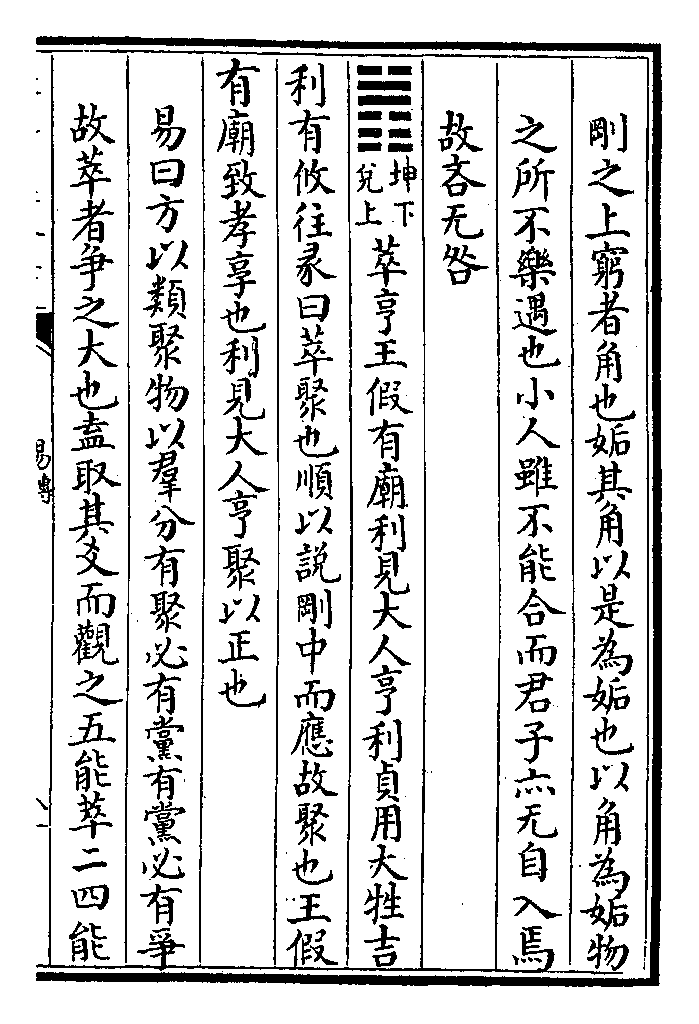 剛之上窮者角也姤其角以是為姤也以角為姤物
之所不樂遇也小人雖不能合而君子亦无自入焉
故吝无咎
䷬坤下兌上萃亨王假有廟利見大人亨利貞用大牲吉
利有攸往彖曰萃聚也順以說剛中而應故聚也王假
有廟致孝享也利見大人亨聚以正也
易曰方以類聚物以羣分有聚必有黨有黨必有爭
故萃者争之大也盍取其爻而觀之五能萃二四能
易傳